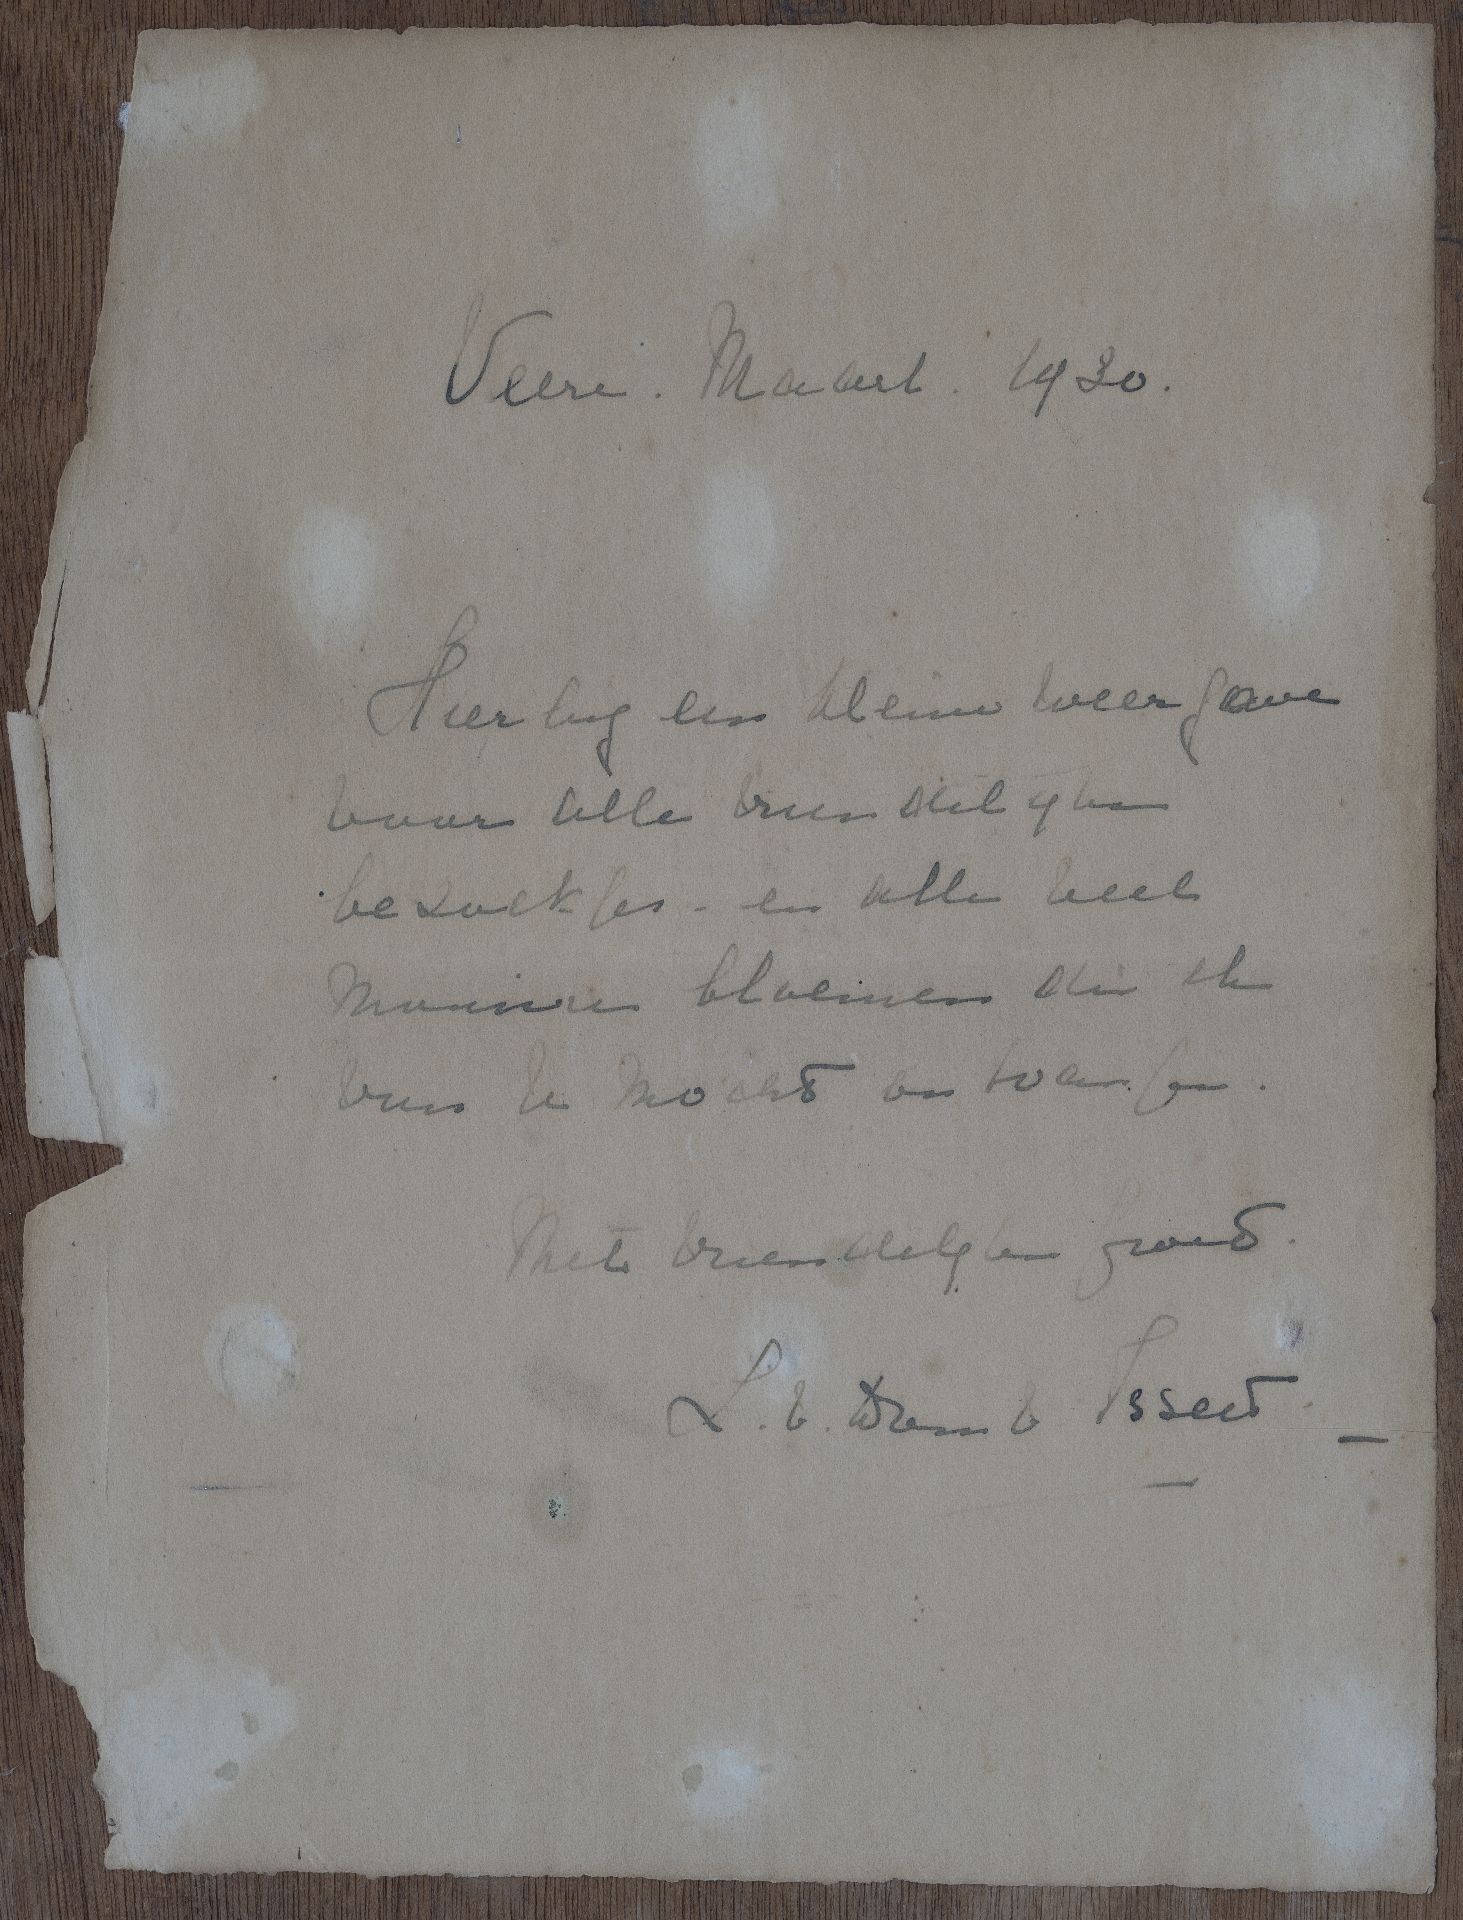 Veere. Maart. 1930.
Hierbij een kleine weergave
voor alle vriendelijken
bezoekjes - en alle veel
mooie bloemen die ik
van U mocht ontvangen.
Met vriendelijken groet.
L. v. Dam v Isselt.